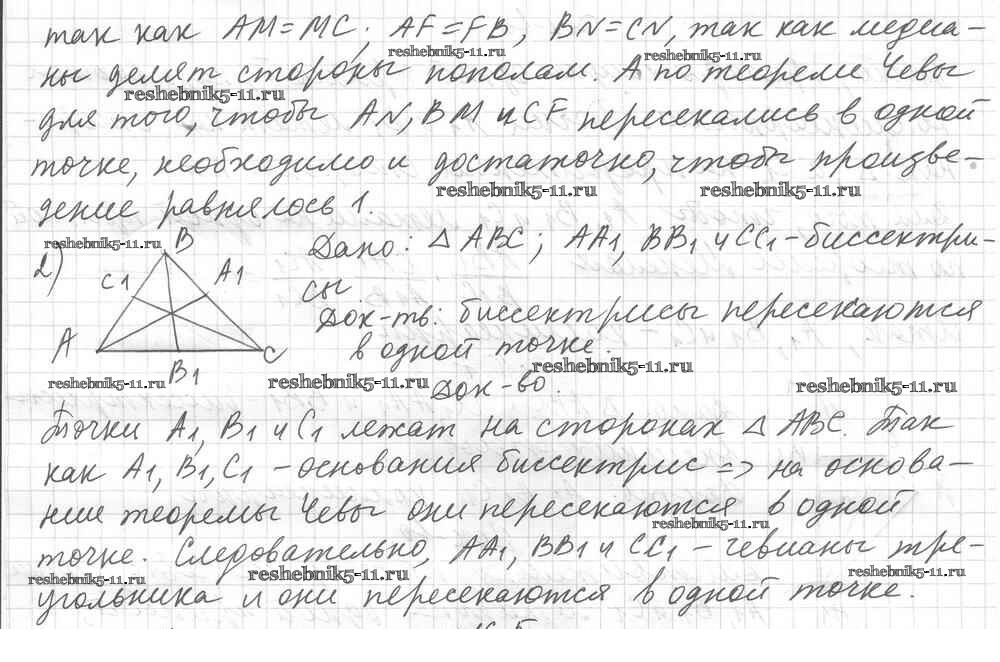 так как AM=MC; AF=FB, BN=CN, так как медиа-
reshebnik5-11.ru reshebnik5-11.ru
ны делят стороны пополам. А по теореме Чевы
reshebnik5-11.ru
для того, чтобы AN, BM и CF пересекались в одной
точке, необходимо и достаточно, чтобы произве-
reshebnik5-11.ru reshebnik5-11.ru
дение равнялось 1.
reshebnik5-11.ru
2) B C1 A1 A C B1
Дано: △ ABC; AA1, BB1 и CC1 - биссектри-
сы.
Док-ть: биссектрисы пересекаются
в одной точке.
reshebnik5-11.ru reshebnik5-11.ru reshebnik5-11.ru reshebnik5-11.ru
Док-во.
Точки A1, B1 и C1 лежат на сторонах △ ABC. Так
как A1, B1, C1 - основания биссектрис => на основа-
нии теоремы Чевы они пересекаются в одной
reshebnik5-11.ru
точке. Следовательно, AA1, BB1 и CC1 - чевианы тре-
reshebnik5-11.ru reshebnik5-11.ru reshebnik5-11.ru
угольника и они пересекаются в одной точке.